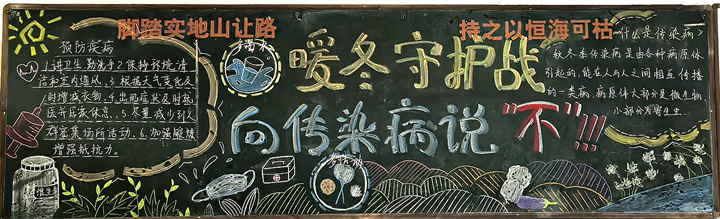 脚踏实地山让路
持之以恒海可枯
预防疾病
1.讲卫生,勤洗手2.保持环境清
洁和室内通风.3.根据天气变化及
时增减衣物.4.出现症状及时就
医并居家休息.5.尽量减少到人
群密集场所活动.6.加强锻炼
增强抵抗力.
多喝水
暖冬守护战
向传染病说"不"!!!
什么是传染病?
秋冬季传染病是由各种病原体
引起的,能在人与人之间相互传播
的一类病,病原体大部分是微生物,
小部分为寄生虫.